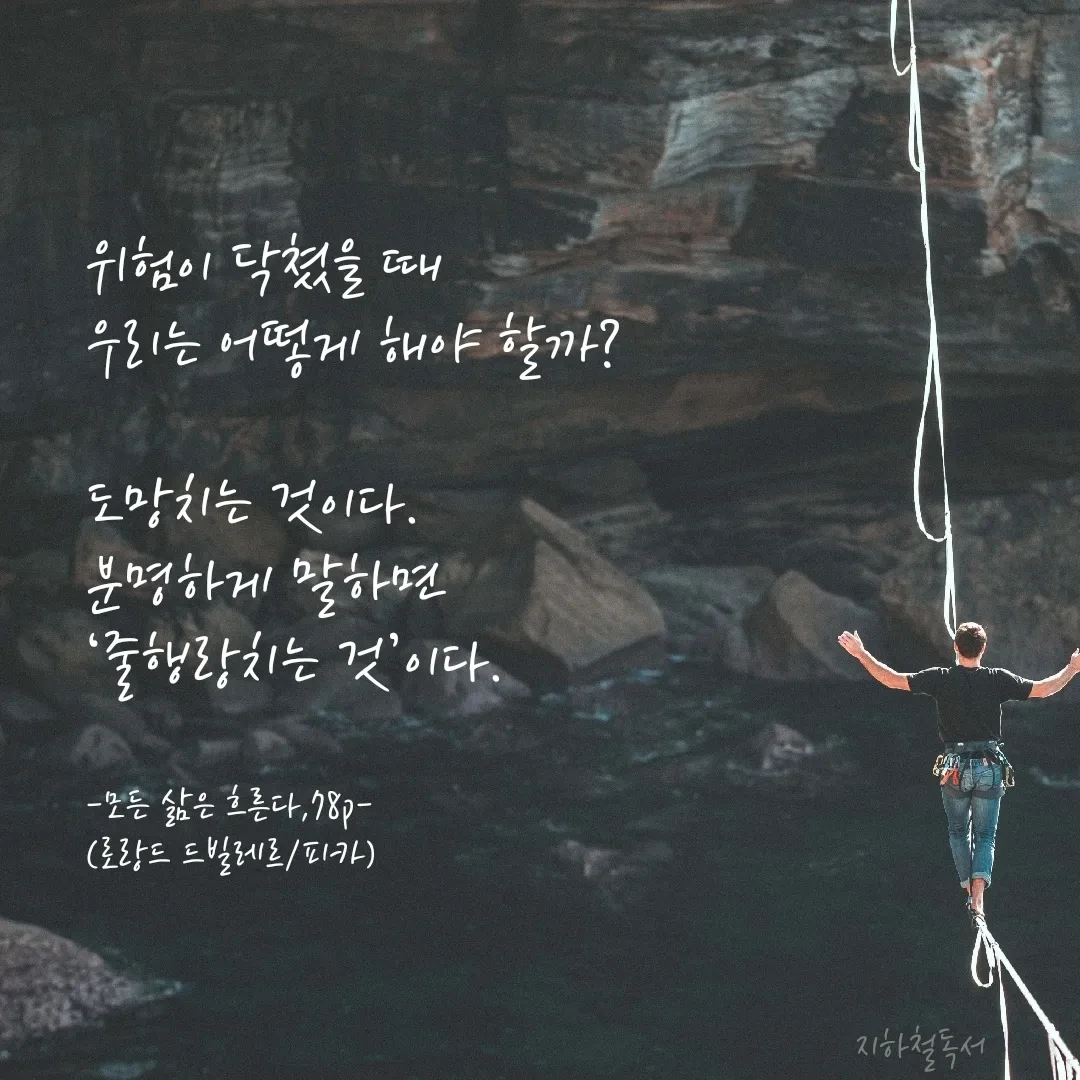 위험이 닥쳤을 때
우리는 어떻게 해야 할까?
도망치는 것이다.
분명하게 말하면
‘줄행랑치는 것’이다.
-모든 삶은 흐른다,78p-
(로랑드 드빌레르/피카)
지하철독서